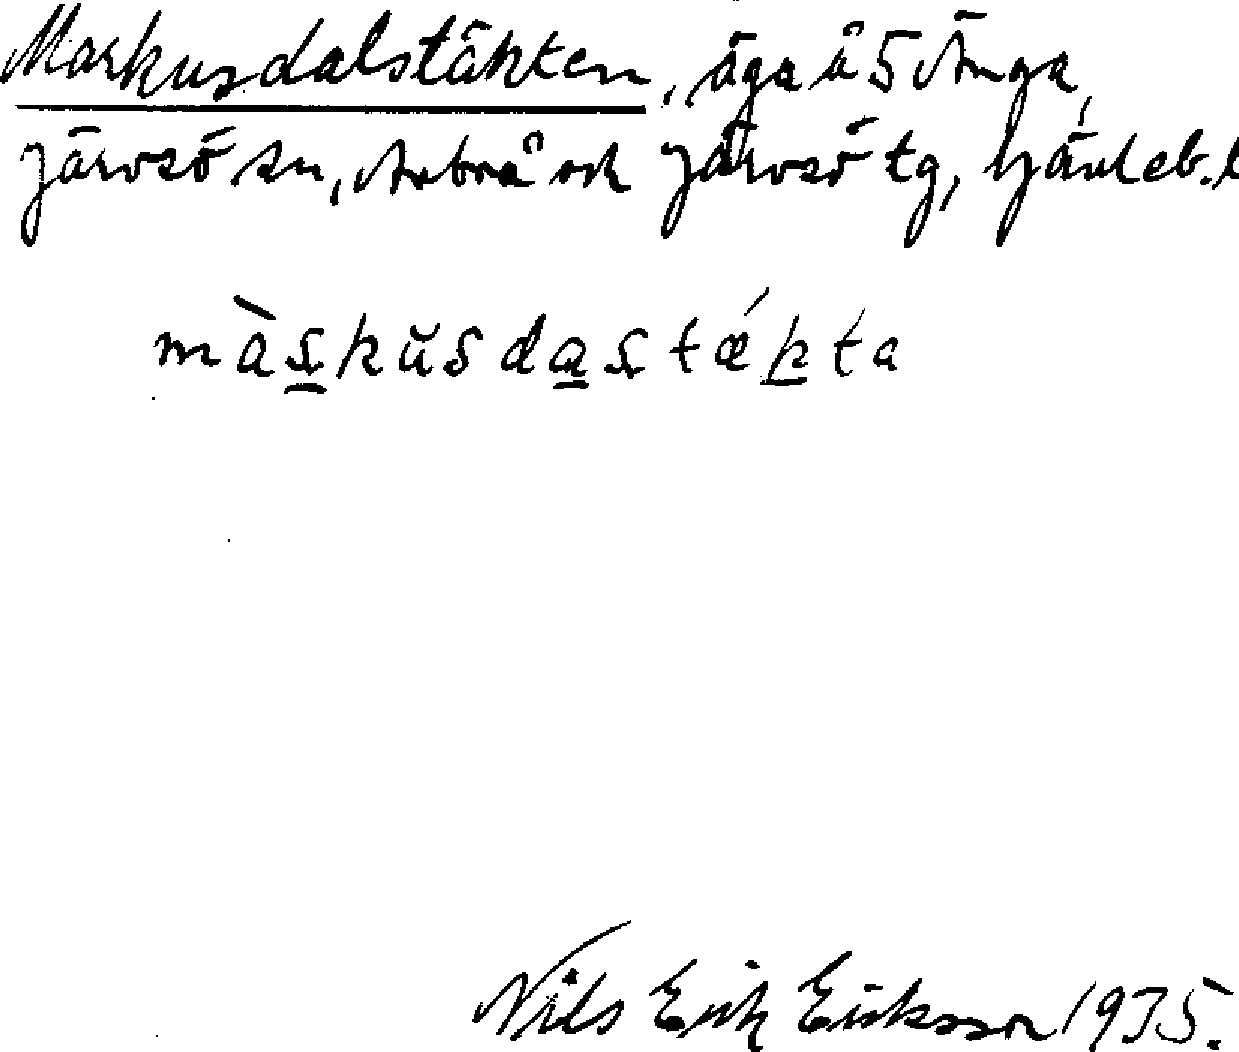 Markusdalstäkten, äga å 5 Änga,
Järvsö sn, Arbrå och Järvsö tg, Gävleb. l
màs̲kŭsda̲stǽk̲ta
Nils Erik Eriksson 1935.